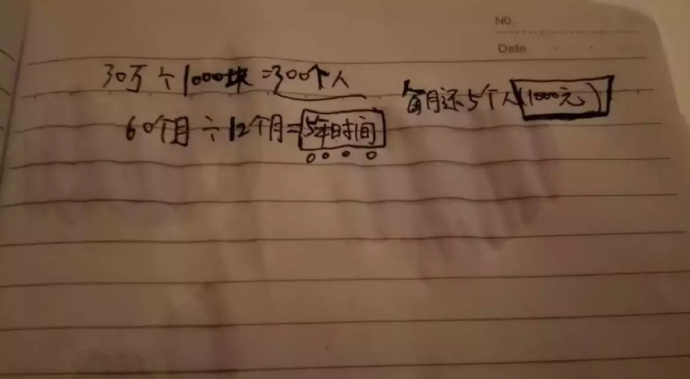 NO.
Date
30万÷1000块=300个人
每月还5个人(1000元)
60个月÷12个月=5年时间